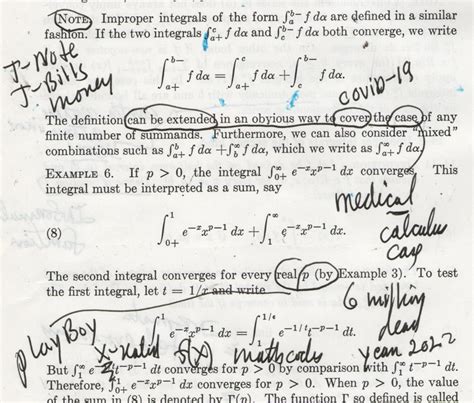 (NOTE) Improper integrals of the form ∫_a^{b-} f dα are defined in a similar
fashion. If the two integrals ∫_{a+}^c f dα and ∫_c^{b-} f dα both converge, we write
T-Note
T-Bills
money
∫_{a+}^{b-} f dα = ∫_{a+}^c f dα + ∫_c^{b-} f dα.
covid-19
The definition can be extended in an obvious way to cover the case of any
finite number of summands. Furthermore, we can also consider "mixed"
combinations such as ∫_{a+}^b f dα + ∫_b^∞ f dα, which we write as ∫_{a+}^∞ f dα.
EXAMPLE 6. If p > 0, the integral ∫_{0+}^∞ e^{-x}x^{p-1} dx converges. This
integral must be interpreted as a sum, say
medical
(8) ∫_{0+}^1 e^{-x}x^{p-1} dx + ∫_1^∞ e^{-x}x^{p-1} dx.
calculus
The second integral converges for every real p (by Example 3). To test
the first integral, let t = 1/x and write
6 million
dead
∫_ε^1 e^{-x}x^{p-1} dx = ∫_1^{1/ε} e^{-1/t}t^{-p-1} dt.
play Boy
X-Rated f(x) math codes year 2022
But ∫_1^∞ e^{-1/t}t^{-p-1} dt converges for p > 0 by comparison with ∫_1^∞ t^{-p-1} dt.
Therefore, ∫_{0+}^1 e^{-x}x^{p-1} dx converges for p > 0. When p > 0, the value
of the sum in (8) is denoted by Γ(p). The function Γ so defined is called